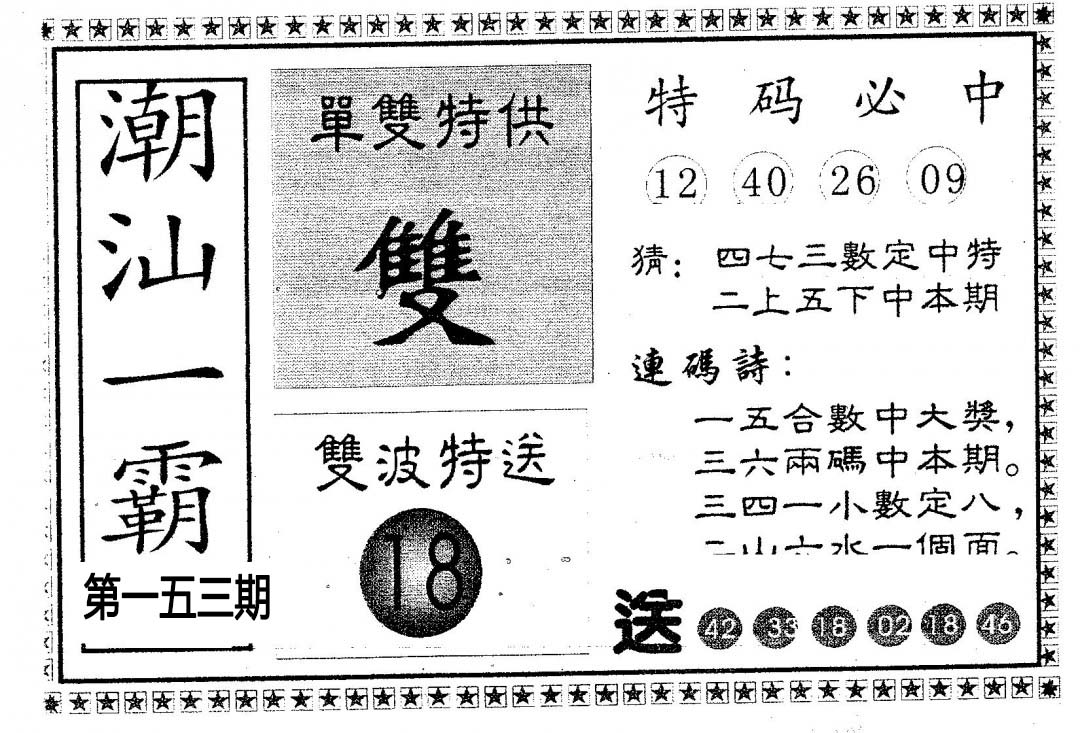 潮汕一霸
第一五三期
單雙特供
雙
雙波特送
18
特码必中
12 40 26 09
猜：四七三數定中特
二上五下中本期
連碼詩：
一五合數中大獎，
三六兩碼中本期。
三四一小數定八，
二山六水一個面。
送 42 33 18 02 18 46